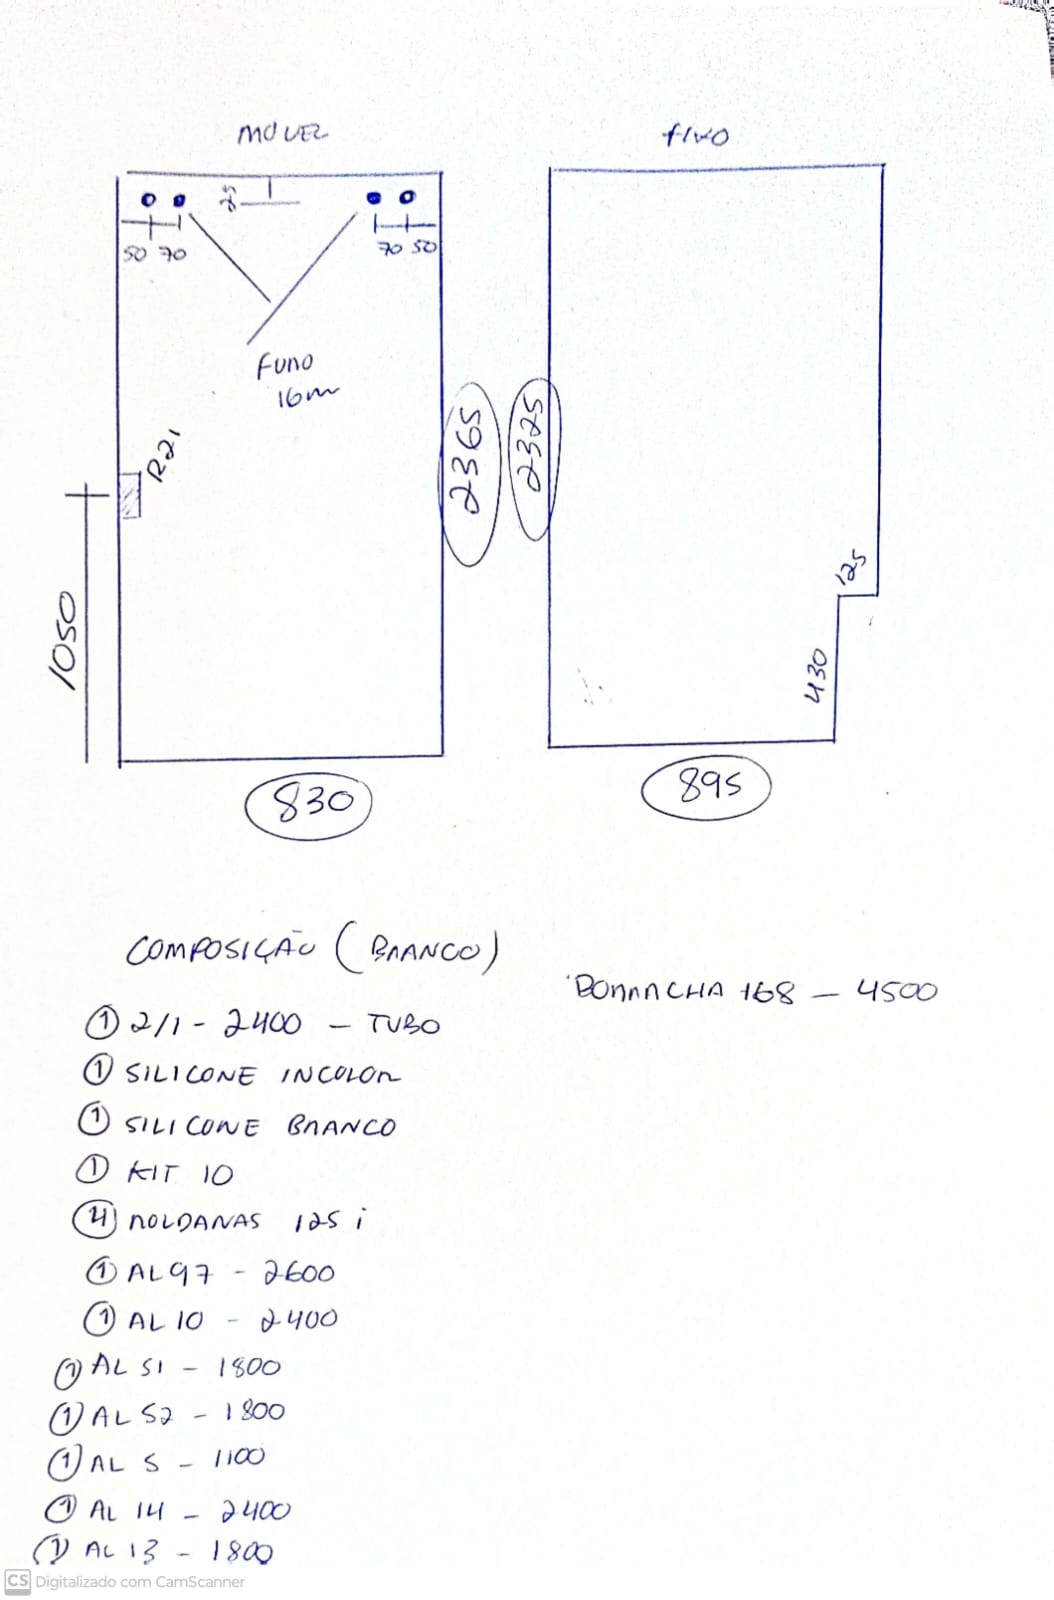 MOVEL
FIXO
25
50 70
70 50
FURO
16m
R21
2365
2325
1050
125
430
830
895
COMPOSIÇÃO (BRANCO)
BORRACHA 168 - 4500
① 2/1 - 2400 - TUBO
① SILICONE INCOLOR
① SILICONE BRANCO
① KIT 10
④ ROLDANAS 125 i
① AL 97 - 2600
① AL 10 - 2400
① AL 51 - 1800
① AL 52 - 1800
① AL 5 - 1100
① AL 14 - 2400
① AL 13 - 1800
CS Digitalizado com CamScanner